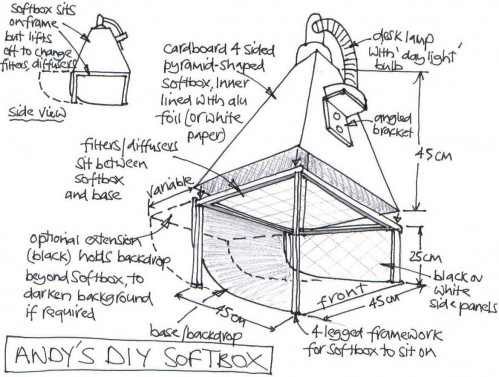 Softbox sits
on frame
but lifts
off to change
filters, diffusers
side view
cardboard 4 sided
pyramid-shaped
softbox, inner
lined with alu
foil (or white
paper)
desk lamp
with 'daylight'
bulb
angled
bracket
45cm
filters/diffusers
sit between
softbox
and base
variable
optional extension
(black) holds backdrop
beyond softbox, to
darken background
if required
25cm
black or
white
side panels
front
45cm
45cm
base/backdrop
4 legged framework
for softbox to sit on
ANDY'S DIY SOFTBOX